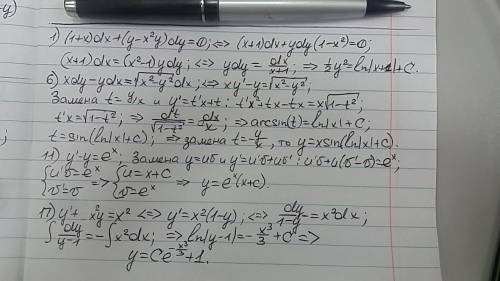 1) (1+x)dx+(y-x²y)dy=0; <=> (x+1)dx+ydy(1-x²)=0;
(x+1)dx=(x²-1)ydy; <=> ydy=dx/(x-1); => ½y²=ln|x-1|+C.
6) xdy-ydx=√(x²-y²)dx; <=> xy'-y=√(x²-y²);
Замена t=y/x и y'=t'x+t: t'x+tx-tx=x√(1-t²);
t'x=√(1-t²); => dt/√(1-t²)=dx/x; => arcsin(t)=ln|x|+C;
t=sin(ln|x|+C); => замена t=y/x, то y=xsin(ln|x|+C).
11) y'-y=eˣ; Замена y=uv и y'=u'v+uv': u'v+u(v'-v)=eˣ;
{u'v=eˣ => {u=x+C => y=eˣ(x+C).
{v'=v {v=eˣ
17) y'+x²y=x² <=> y'=x²(1-y); <=> dy/(1-y)=x²dx;
∫dy/(y-1)=-∫x²dx; => ln|y-1|=-x³/3+C =>
y=Ce^(-x³/3)+1.